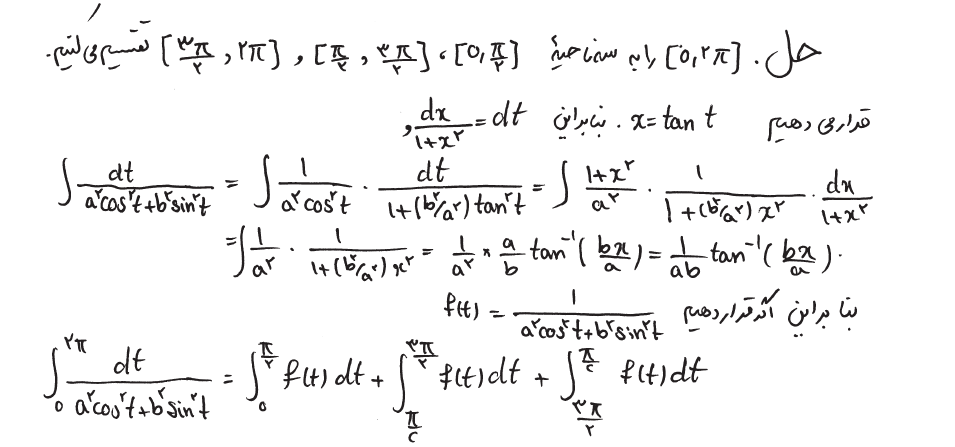 حل. [0,۲π] را به سه ناحیهٔ [0, π/۲] ، [π/۲, ۳π/۲] , [۳π/۲, ۲π] تقسیم می‌کنیم.
قرار می دهیم x = tan t . بنابراین dx/(1+x^۲) = dt ,
∫ dt/(a^۲cos^۲t+b^۲sin^۲t) = ∫ 1/(a^۲cos^۲t) · dt/(1+(b^۲/a^۲)tan^۲t) = ∫ (1+x^۲)/a^۲ · 1/(1+(b^۲/a^۲)x^۲) · dx/(1+x^۲)
= ∫ 1/a^۲ · 1/(1+(b^۲/a^۲)x^۲) = 1/a^۲ × a/b tan^-1(bx/a) = 1/ab tan^-1(bx/a).
بنا براین اگر قرار دهیم f(t) = 1/(a^۲cos^۲t+b^۲sin^۲t)
∫_0^{۲π} dt/(a^۲cos^۲t+b^۲sin^۲t) = ∫_0^{π/۲} f(t) dt + ∫_{π/۲}^{۳π/۲} f(t) dt + ∫_{۳π/۲}^{π/۲} f(t) dt